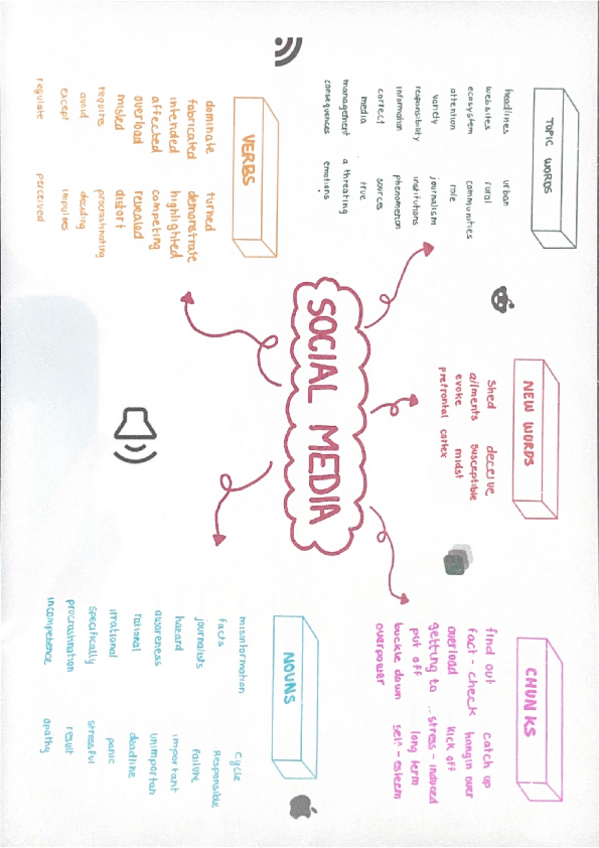 TOPIC WORDS
headlines urban
websites rural
ecosystem communities
attention role
variety journalism
responsibility institutions
information phenomenon
correct sources
media true
management a threating
consequences emotions
NEW WORDS
shed deceive
ailments susceptible
evoke midst
prefrontal cortex
CHUNKS
find out catch up
fact - check hangin over
overload kick off
getting to .. stress - induced
put off long term
buckle down self - esteem
overpower
SOCIAL MEDIA
VERBS
dominate turned
fabricated demonstrate
intended highlighted
affected competing
overload revealed
misled distort
requires procrastinating
avoid deciding
except impulses
regulate perceived
NOUNS
misinformation cycle
facts Responsible
journalists failure
hazard important
awareness unimportan
rational deadline
irrational panic
specifically stressful
procrastination result
incompetence apathy